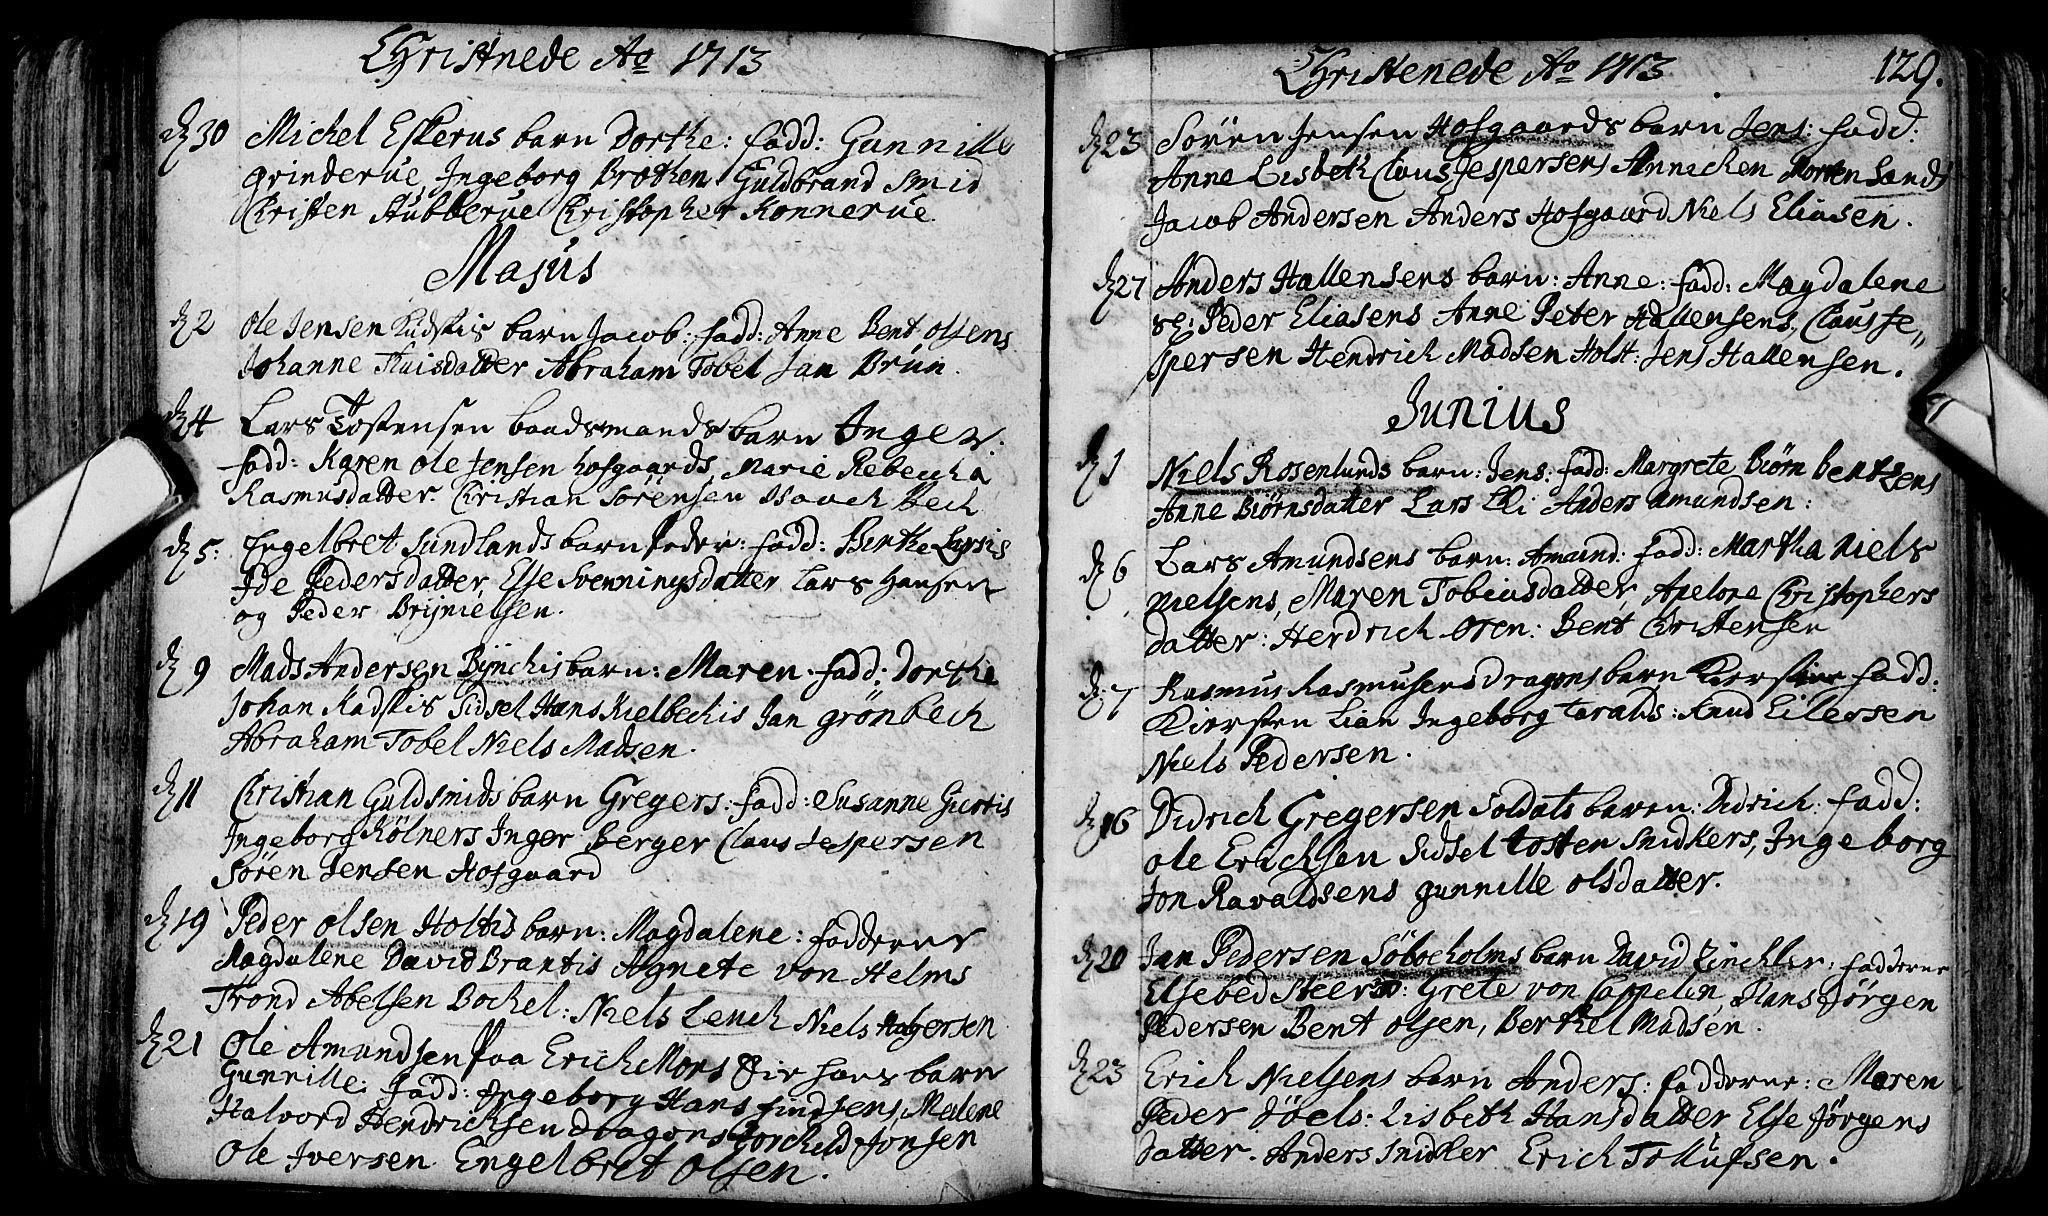 Christnede Ao 1713
d 30 Michel Eskerus barn Dorthe: fadd: Gunnille
Grinderue Ingeborg Brathen Guldbrand Smid
Christen Stubberue Christopher Konnerue.
Majus
d 2 Ole Jensen Kudskis barn Jacob: fadd: Anne Bent Olsens
Johanne Thuisdatter Abraham Tobel Jan Brun.
d 4 Lars Tostensen baadsmands barn Inger.
fadd: Karen Ole Jensen Hofgaards Marie Rebecka
Rasmusdatter. Christian Sørensen Isaach Bech
d 5: Engelbret Sundlands barn Peder: fadd: Birthe Larsis
Ide Pedersdatter, Else Svenningsdatter Lars Hansen
og Peder Brijnielsen.
d 9 Mads Andersen Bijnchis barn: Maren. fadd: Dorthe
Johan Kadskis Sidsel Hans Kielbeckis Jan Grönbech
Abraham Tobel Niels Madsen.
d 11 Christian Guldsmids barn Gregers: fadd: Susanne Giertis
Ingeborg Kölners Inger Berger Claus Jespersen
Sören Jensen Hofgaard
d 19 Peder Olsen Holtis barn: Magdalene: fadderne
Magdalene David Brantis Agnete von Helms
Trond Abelsen Bochel: Niels Lench Niels Holgersen
d 21 Ole Amundsen paa Erich Mors Eie hans barn
Gunnille: fadd: Ingeborg Hans Findsens, Malene
Halvord Hendrichsen dragons Torchild Jonsen
Ole Iversen Engelbret Olsen.
Christenede Ao 1713 129.
d 23 Sören Jensen Hofgaards barn Jens: fadd:
Anne Lisbeth Claus Jespersens Annichen Morten Lands
Jacob Andersen Anders Hofgaard Niels Eliasen.
d 27 Anders Hallensens barn: Anne: fadd: Magdalene
Sl: Peder Eliasens Anne Peter Hallensens, Claus Je-
spersen Hendrich Madsen Holst: Jens Hallensen.
Junius
d 1 Niels Rosenlunds barn: Jens: fadd: Margrete Biørn Bentzens
Anne Biørnsdatter Lars Eli Anders Amundsen:
d 6 Lars Amundsens barn: Amund: fadd: Martha Niels
Nielsens, Maren Tobiasdatter, Apelone Christophers
datter: Hendrich Oren: Bent Christensen
d 7 Rasmus Rasmusens Dragons barn Kierstine fadd:
Kiersten Lian Ingeborg Taralds: Knud Eilersen
Niels Pedersen.
d 16 Didrich Gregersen Soldats barn: Didrich: fadd:
Ole Erichsen Sidsel Tosten Snidkers, Ingeborg
Jon Ravaldsens Gunnille Olsdatter.
d 20 Jan Pedersen Söboeholms barn David Zinchler: fadderne
Elsebed Steers: Grete von Cappelen, Hans Jörgen
Pedersen Bent Olsen, Berthel Madsen.
d 23 Erich Nielsens barn Anders: fadderne: Maren
Peder Jöels: Lisbeth Hansdatter Else Jørgens
datter. Anders Snidker Erich Tollufsen.